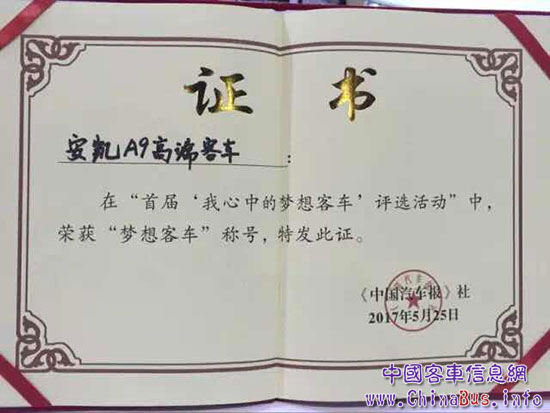 证 书
安凯A9高端客车：
在“首届‘我心中的梦想客车’评选活动”中，
荣获“梦想客车”称号，特发此证。
《中国汽车报》社
2017年5月25日
中國客車信息網
www.ChinaBus.info